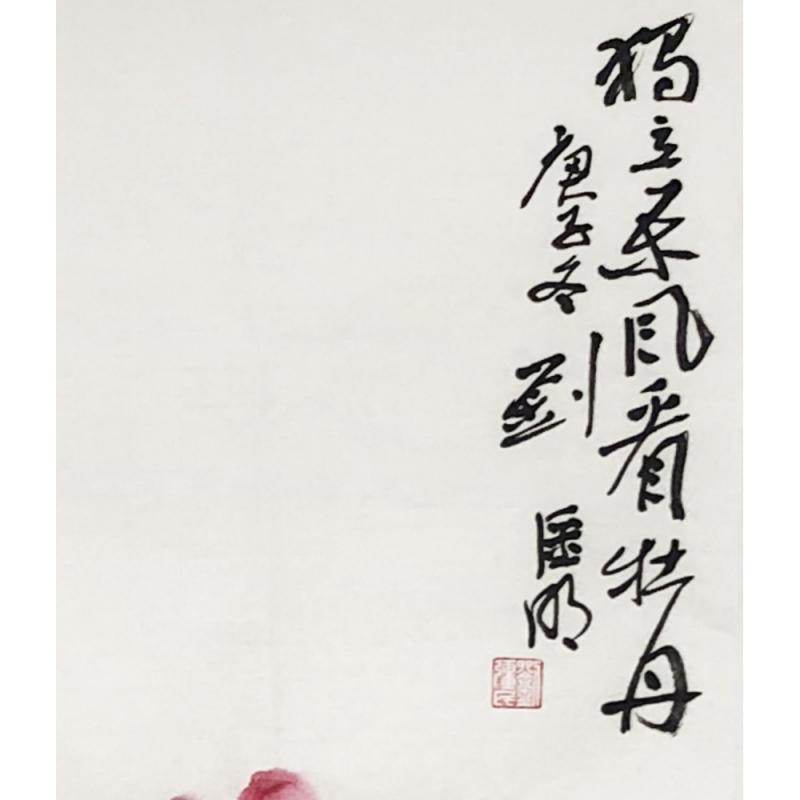 獨立東風看牡丹
庚子冬 劉 明